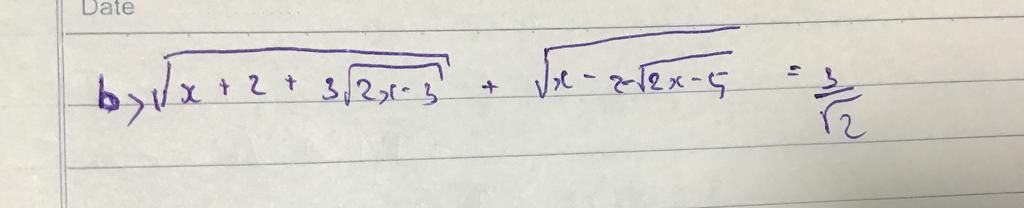 Date
b> √(x + 2 + 3√(2x - 3)) + √(x - 2 - √(2x - 5)) = 3/√2